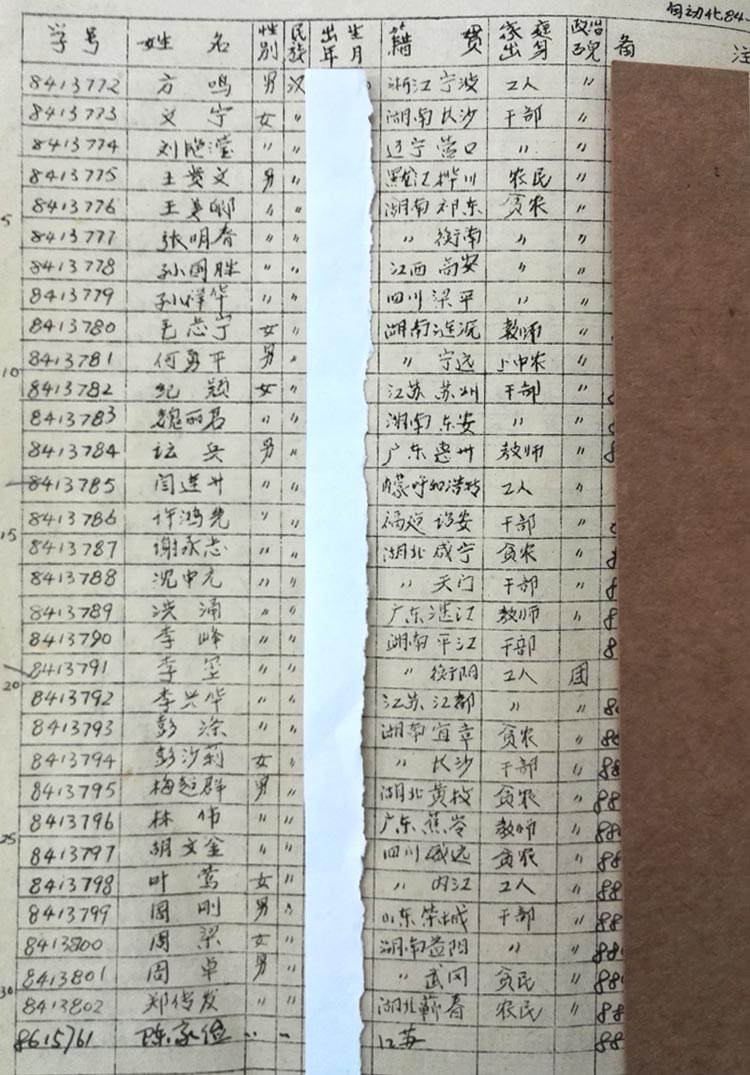 自动化84
学号 姓名 性别 民族 出生年月 籍贯 家庭出身 政治 备注
8413772 方鸣 男 汉 浙江宁波 工人 〃
8413773 文宁 女 〃 湖南长沙 干部 〃
8413774 刘 〃 〃 辽宁营口 〃 〃
8413775 王贤文 男 〃 黑龙江桦川 农民 〃
5 8413776 王 〃 〃 湖南祁东 贫农 〃
8413777 张明春 〃 〃 〃 衡南 〃 〃
8413778 孙国胜 〃 〃 江西高安 〃 〃
8413779 孙祥华 〃 〃 四川梁平 〃 〃
8413780 毛志宁 女 〃 湖南涟源 教师 〃
10 8413781 何勇平 男 〃 〃 宁远 上中农 〃
8413782 纪颖 女 〃 江苏苏州 干部 〃
8413783 魏丽君 〃 〃 湖南东安 〃 〃
8413784 坛兵 男 〃 广东惠州 教师 〃 8
8413785 闫连升 〃 〃 内蒙呼和浩特 工人 〃
15 8413786 许鸿光 〃 〃 福建诏安 干部 〃
8413787 谢永志 〃 〃 湖北咸宁 贫农 〃 8
8413788 沈中元 〃 〃 〃 天门 干部 〃 8
8413789 洪涌 〃 〃 广东湛江 教师 〃 8
8413790 李峰 〃 〃 湖南平江 干部 8
20 8413791 李坚 〃 〃 〃 衡阳 工人 团
8413792 李兴华 〃 〃 江苏江都 〃 〃 8
8413793 彭涤 〃 〃 湖南宜章 贫农 〃 88
8413794 彭沙莉 女 〃 〃 长沙 干部 〃 88
8413795 梅超群 男 〃 湖北黄梅 贫农 〃 88
8413796 林伟 〃 〃 广东蕉岭 教师 〃 88
25 8413797 胡文金 〃 〃 四川威远 贫农 〃 88
8413798 叶莺 女 〃 〃 内江 工人 〃 88
8413799 周刚 男 〃 山东荣城 干部 〃 88
8413800 周梁 女 〃 湖南益阳 〃 〃 88
30 8413801 周卓 男 〃 〃 武冈 贫民 〃 88
8413802 郑传发 〃 〃 湖北蕲春 农民 〃 88
8615761 陈家俭 〃 〃 江苏 88